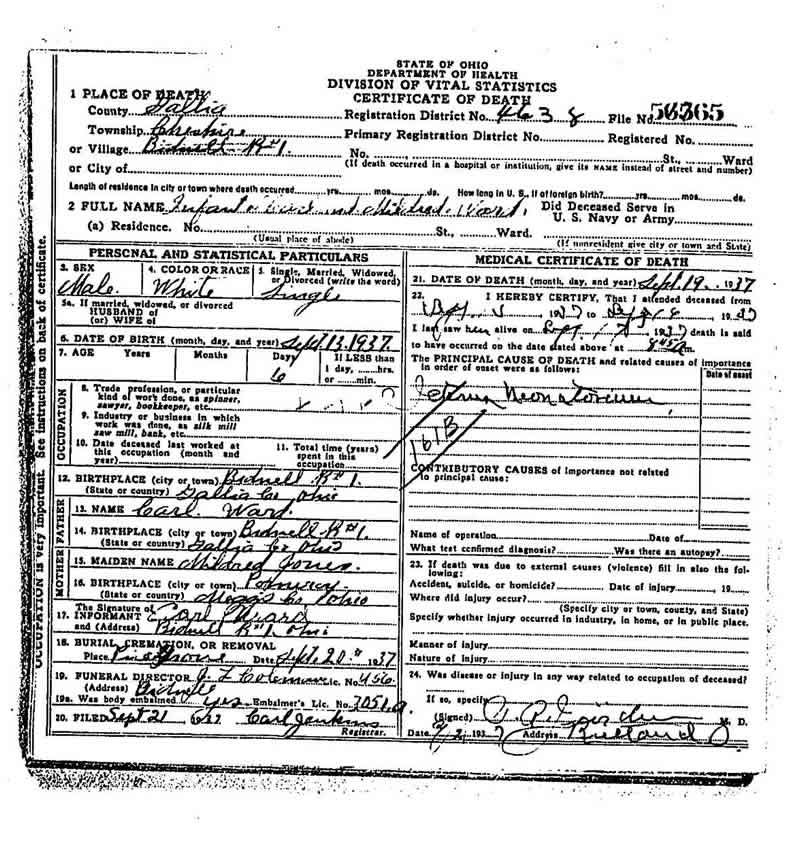 STATE OF OHIO
DEPARTMENT OF HEALTH
DIVISION OF VITAL STATISTICS
CERTIFICATE OF DEATH
1 PLACE OF DEATH
County Gallia Registration District No. 463 File No. 56365
Township Cheshire Primary Registration District No. Registered No.
or Village Bidwell R#1. No. St., Ward
or City of (If death occurred in a hospital or institution, give its NAME instead of street and number)
Length of residence in city or town where death occurred yrs. mos. ds. How long in U. S., if of foreign birth? yrs. mos. ds.
2 FULL NAME Infant of Carl and Mildred Ward. Did Deceased Serve in U. S. Navy or Army
(a) Residence. No. St., Ward.
(Usual place of abode) (If nonresident give city or town and State)
PERSONAL AND STATISTICAL PARTICULARS
3. SEX Male. 4. COLOR OR RACE White 5. Single, Married, Widowed, or Divorced (write the word) Single
5a. If married, widowed, or divorced
HUSBAND of
(or) WIFE of
6. DATE OF BIRTH (month, day, and year) Sept 13. 1937.
7. AGE Years Months Days 6 If LESS than 1 day, hrs. or min.
OCCUPATION
8. Trade, profession, or particular kind of work done, as spinner, sawyer, bookkeeper, etc.
9. Industry or business in which work was done, as silk mill saw mill, bank, etc.
10. Date deceased last worked at this occupation (month and year)
11. Total time (years) spent in this occupation
12. BIRTHPLACE (city or town) Bidwell R#1.
(State or country) Gallia Co Ohio
FATHER
13. NAME Carl Ward.
14. BIRTHPLACE (city or town) Bidwell R#1.
(State or country) Gallia Co Ohio
MOTHER
15. MAIDEN NAME Mildred Jones.
16. BIRTHPLACE (city or town) Pomeroy
(State or country) Meigs Co Ohio
17. The Signature of INFORMANT Carl Ward
and (Address) Bidwell R#1. Ohio
18. BURIAL, CREMATION, OR REMOVAL
Place Pine Grove Date Sept. 20" 1937
19. FUNERAL DIRECTOR J L Coleman Lic. No. 456
(Address) Bidwell
19a. Was body embalmed yes Embalmer's Lic. No. 3051.a
20. FILED Sept 21 1937 Carl Jenkins
Registrar.
MEDICAL CERTIFICATE OF DEATH
21. DATE OF DEATH (month, day, and year) Sept. 19. 1937
22. I HEREBY CERTIFY, That I attended deceased from
1937 to 1937
I last saw him alive on Sept 1937 death is said
to have occurred on the date stated above at 845 a m.
The PRINCIPAL CAUSE OF DEATH and related causes of importance
in order of onset were as follows: Date of onset
Icterus Neonatorum
161B
CONTRIBUTORY CAUSES of importance not related
to principal cause:
Name of operation Date of
What test confirmed diagnosis? Was there an autopsy?
23. If death was due to external causes (violence) fill in also the following:
Accident, suicide, or homicide? Date of injury 19
Where did injury occur?
(Specify city or town, county, and State)
Specify whether injury occurred in industry, in home, or in public place.
Manner of injury
Nature of injury
24. Was disease or injury in any way related to occupation of deceased?
If so, specify
(Signed) M. D.
Date 1937 Address Rutland O
OCCUPATION is very important. See instructions on back of certificate.